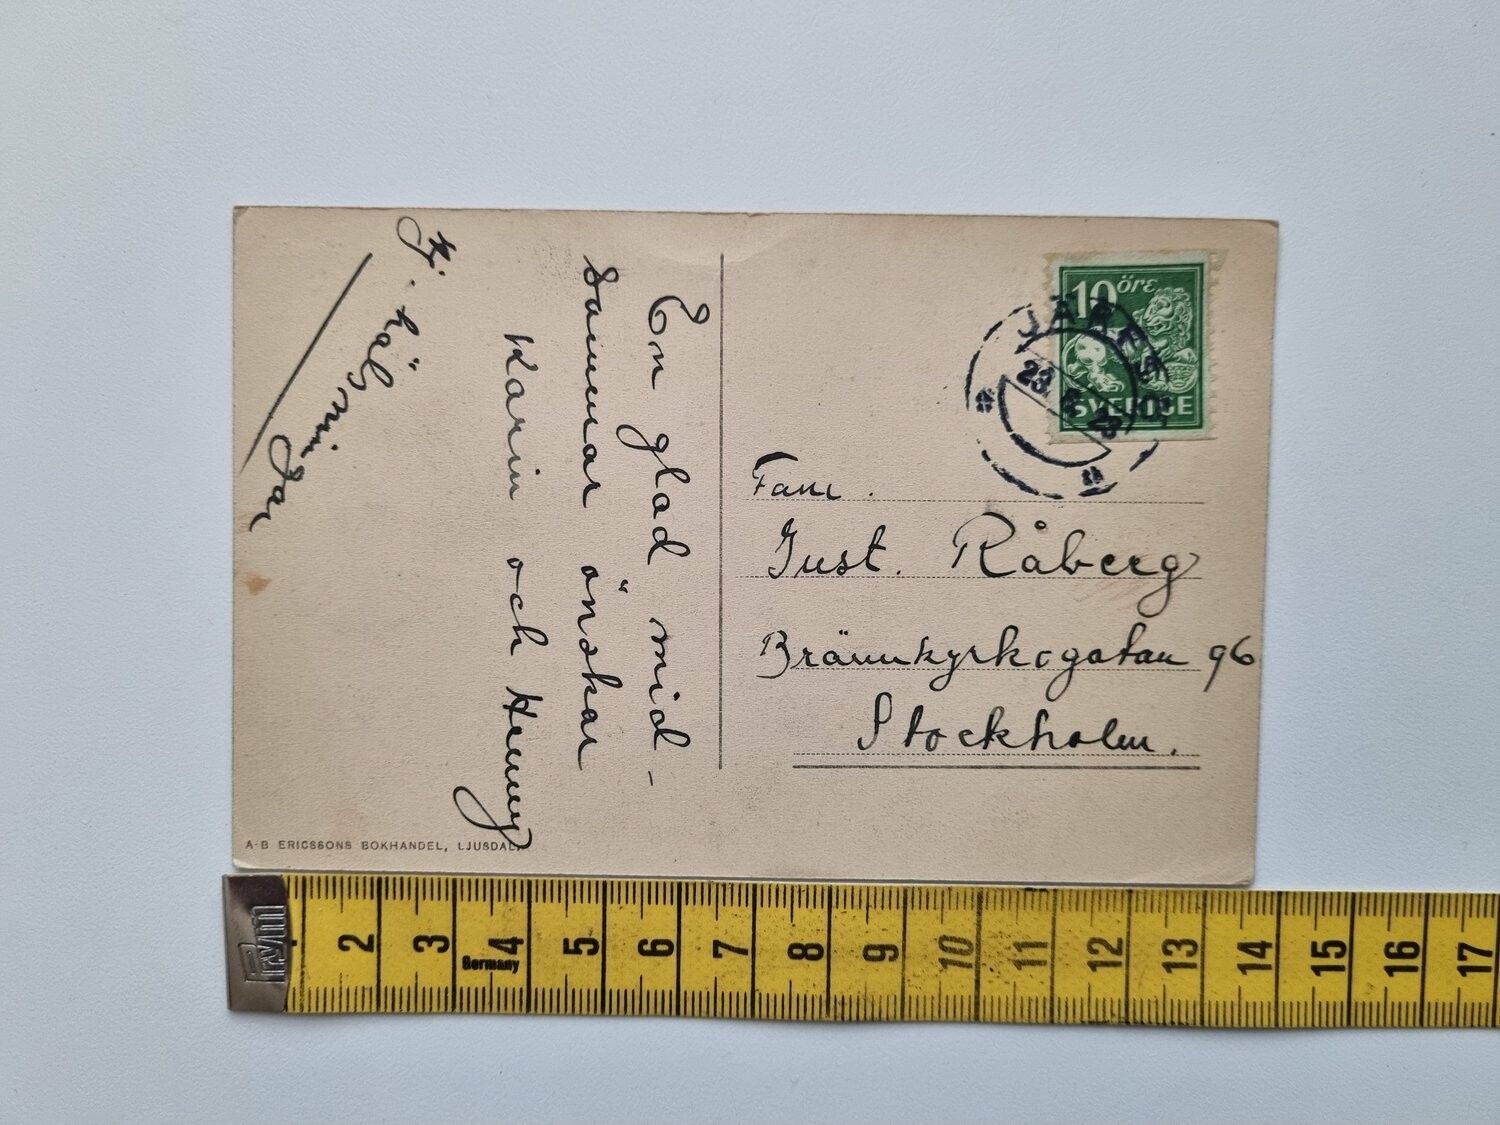 En glad mid-
sommar önskar
Karin och Henny
Hj. hälsningar
10 öre
SVERIGE
JÄRFSÖ
23. 6. 23
Fam.
Gust. Råberg
Brännkyrkogatan 96
Stockholm.
A-B ERICSSONS BOKHANDEL, LJUSDAL.
Prym
Germany
2 3 4 5 6 7 8 9 10 11 12 13 14 15 16 17